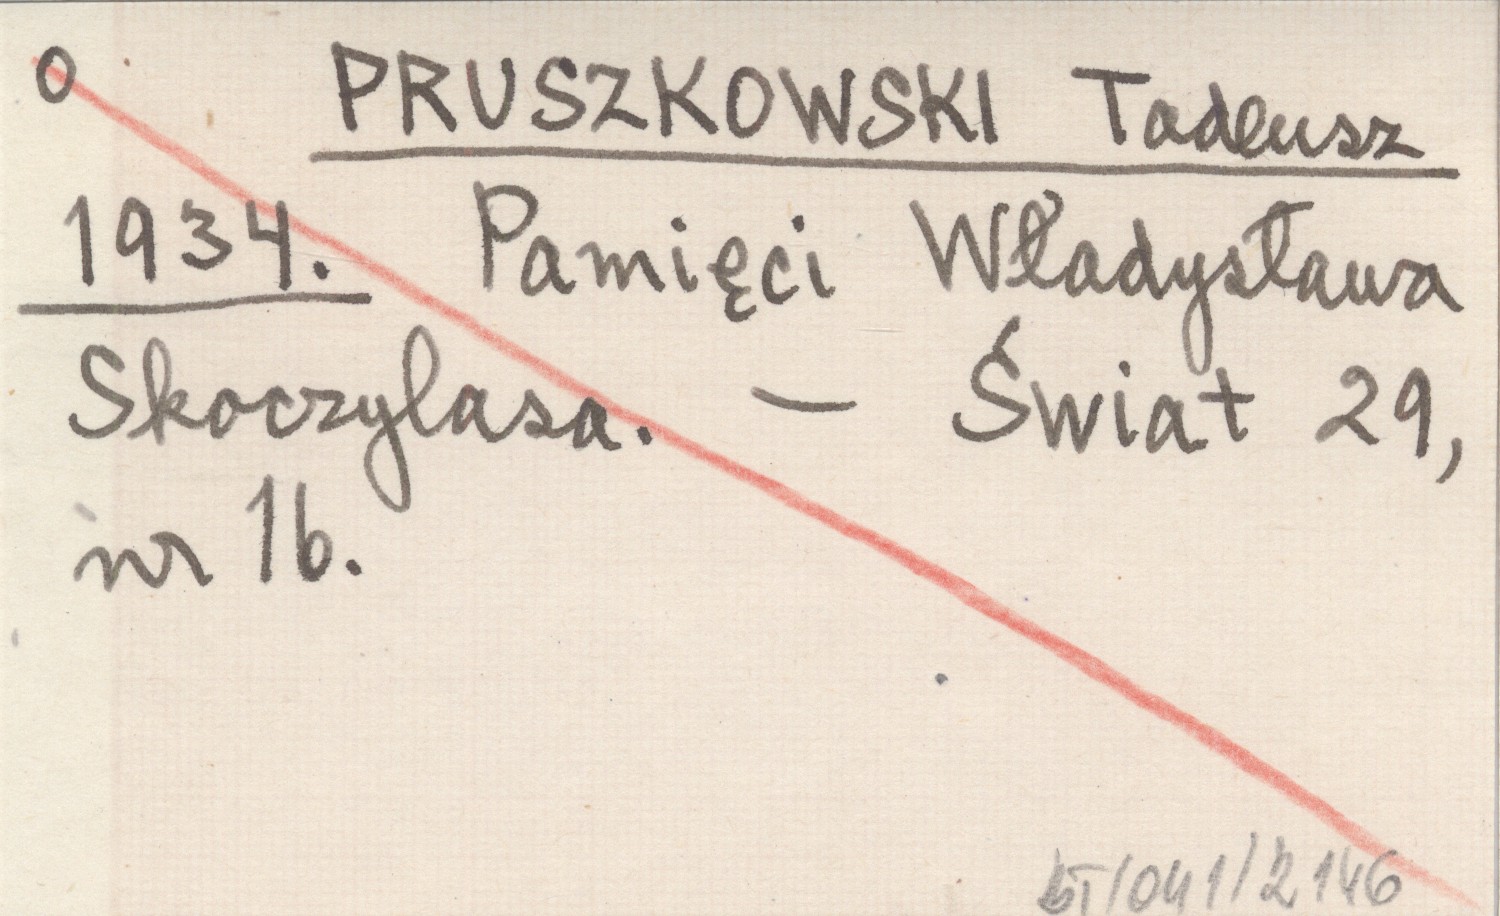 O PRUSZKOWSKI Tadeusz
1934. Pamięci Władysława
Skoczylasa. — Świat 29,
nr 16.
/041/2146